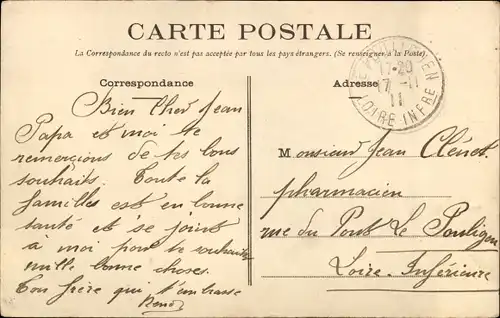 CARTE POSTALE
La Correspondance du recto n'est pas acceptée par tous les pays étrangers. (Se renseigner à la Poste).
Correspondance
Adresse
17-20
17 -11
11
LOIRE INFRE
Bien Cher Jean
Papa et moi te
remercions de tes bons
souhaits. Toute la
familles est en bonne
santé et se joint
à moi pour te souhaiter
mille bonne choses.
Ton frère qui t'embrasse
Monsieur Jean Clénet.
pharmacien
rue du Pont Le Pouligen
Loire-Inférieure